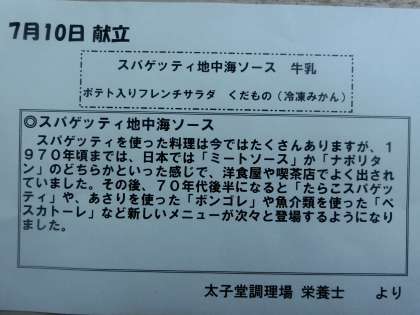 7月10日 献立
スパゲッティ地中海ソース 牛乳
ポテト入りフレンチサラダ くだもの(冷凍みかん)
◎スパゲッティ地中海ソース
スパゲティを使った料理は今ではたくさんありますが、1
970年頃までは、日本では「ミートソース」か「ナポリタ
ン」のどちらかといった感じで、洋食屋や喫茶店でよく出され
ていました。その後、70年代後半になると「たらこスパゲッ
ティ」や、あさりを使った「ボンゴレ」や魚介類を使った「ペ
スカトーレ」など新しいメニューが次々と登場するようになり
ました。
太子堂調理場 栄養士 より